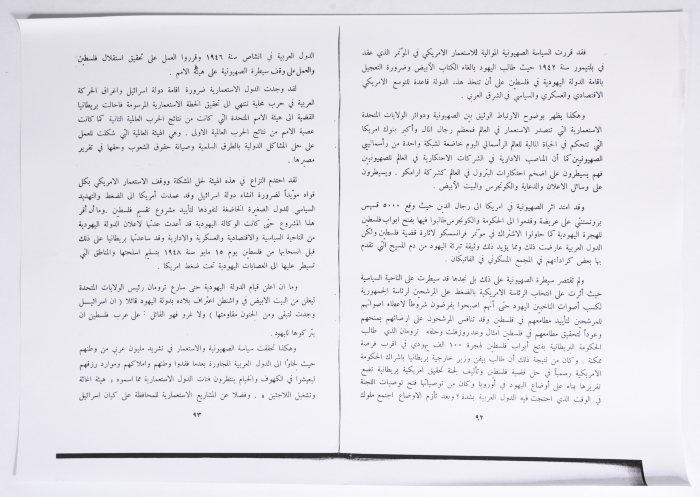 فقد قررت السياسة الصهيونية الموالية للاستعمار الامريكي في المؤتمر الذي عقد
في بلتيمور سنة ١٩٤٢ حيث طالب اليهود بالغاء الكتاب الأبيض وضرورة التعجيل
باقامة الدولة اليهودية في فلسطين على أن تتخذ هذه الدولة قاعدة للتوسع الامريكي
الاقتصادي والعسكري والسياسي في الشرق العربي .
وهكذا يظهر بوضوح الارتباط الوثيق بين الصهيونية ودوائر الولايات المتحدة
الاستعمارية التي تتصدر الاستعمار في العالم فمعظم رجال المال وأكبر بنوك امريكا
التي تتحكم في الحياة المالية للعالم الرأسمالي اليوم خاضعة لشبكة واحدة من رأسماليي
الصهيونيين كما أن المناصب الادارية في الشركات الاحتكارية في العالم للصهيونيين
فهم يسيطرون على اضخم احتكارات البترول في العالم كشركة ارامكو . ويسيطرون
على وسائل الاعلان والدعاية والكونجرس والبيت الأبيض .
وقد امتد اثر الصهيونية في امريكا الى رجال الدين حيث وقع ٥٠٠٠ قسيس
بروتستنتي على عريضة وقدموا الى الحكومة والكونجرس طالبوا فيها بفتح ابواب فلسطين
للهجرة اليهودية كما حاولوا الاشتراك في مؤتمر فرانسسكو لاثارة قضية فلسطين ولكن
الدول العربية عارضت ذلك ومما يؤيد ذلك وثيقة تبرئة اليهود من دم المسيح التي تقدم
بها بعض كرادلتهم في المجمع المسكوني في الفاتيكان .
ولم تقتصر سيطرة الصهيونية على ذلك بل نجدها قد سيطرت على الناحية السياسية
حيث أثرت على انتخاب الرئاسة الامريكية بالضغط على المرشحين لرئاسة الجمهورية
لكسب أصوات الناخبين اليهود حتى أنهم اصبحوا يفرضون شروطاً لاعطاء اصواتهم
للمرشحين لتأييد مطامعهم في فلسطين وقد تنافس المرشحون على ارضائهم بمنحهم
وعوداً لتحقيق مطامعهم في فلسطين أمثال وعد روزفلت وخلفه ترومان الذي طالب
الحكومة البريطانية بفتح أبواب فلسطين لهجرة ١٠٠ الف يهودي في اقرب فرصة
ممكنة . وكان من نتيجة ذلك أن طالب بيفن وزير خارجية بريطانيا باشراك الحكومة
الامريكية رسمياً في حل قضية فلسطين وتأليف لجنة تحقيق امريكية بريطانية تضع
تقريرها بناء على أوضاع اليهود في أوروبا وكان من توصياتها فتح توصيات اللجنة
في الوقت الذي احتجت فيه الدول العربية بشدة ؟ وبعد تأزم الاوضاع اجتمع ملوك
٩٢
الدول العربية في انشاص سنة ١٩٤٦ وقرروا العمل على تحقيق استقلال فلسطين
والعمل على وقف سيطرة الصهيونية على هيئة الامم .
لقد وجدت الدول الاستعمارية ضرورة اقامة دولة اسرائيل واغراق الحركة
العربية في حرب محلية تنتهي الى تحقيق الخطة الاستعمارية المرسومة فاحالت بريطانيا
القضية الى هيئة الامم المتحدة التي كانت من نتائج الحرب العالمية الثانية كما كانت
عصبة الامم من نتائج الحرب العالمية الاولى . وهي الهيئة العالمية التي شكلت للعمل
على حل المشاكل الدولية بالطرق السلمية وصيانة حقوق الشعوب وحقها في تقرير
مصيرها .
لقد احتدم النزاع في هذه الهيئة لحل المشكلة ووقف الاستعمار الامريكي بكل
قواه مؤيداً لضرورة انشاء دولة اسرائيل وقد عمدت أمريكا الى الضغط والتهديد
السياسي للدول الصغيرة الخاضعة لنفوذها لتأييد مشروع تقسيم فلسطين . وما أن أقر
هذا المشروع حتى كانت الوكالة اليهودية قد أعدت عدتها لاعلان الدولة اليهودية
من الناحية السياسية والاقتصادية والعسكرية والادارية وقد ساعدتها بريطانيا على ذلك
قبل انسحابها من فلسطين يوم ١٥ مايو سنة ١٩٤٨ بتسليم اسلحتها والمناطق التي
تسيطر عليها الى العصابات اليهودية تحت ضغط امريكا .
وما ان اعلن قيام الدولة اليهودية حتى سارع ترومان رئيس الولايات المتحدة
ليعلن من البيت الابيض في واشنطن اعتراف بلاده بدولة اليهود قائلا ( ان اسرائيل
وجدت لتبقى ومن الجنون مقاومتها ) ولا غرو فهو القائل : على عرب فلسطين ان
يتركوها لليهود .
وهكذا تحققت سياسة الصهيونية والاستعمار في تشريد مليون عربي من وطنهم
حيث لجأوا الى الدول العربية المجاورة بعدما فقدوا وطنهم واملاكهم وموارد رزقهم
ليعيشوا في الكهوف والخيام ينتظرون فتات الدول الاستعمارية مما اسموه « هيئة اغاثة
وتشغيل اللاجئين » . وفضلا عن المشاريع الاستعمارية للمحافظة على كيان اسرائيل
٩٣